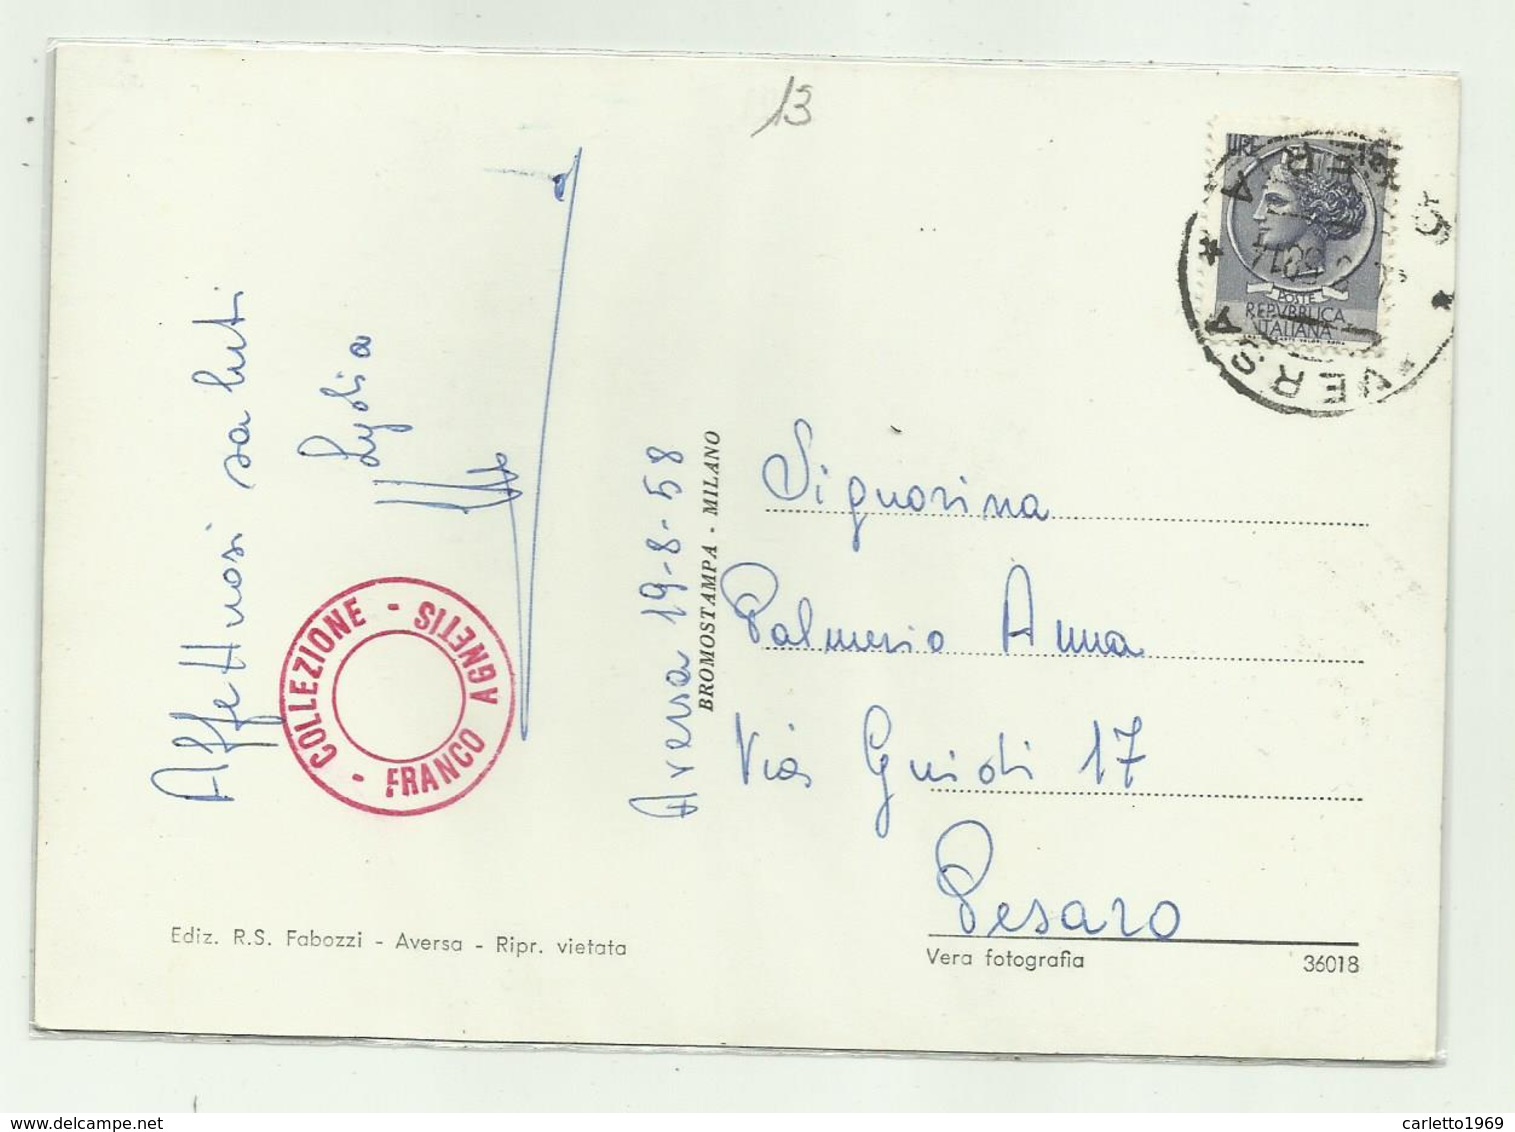 13
LIRE 15
POSTE
REPVBBLICA
ITALIANA
AVERSA
Affettuosi saluti
Lydia
COLLEZIONE - FRANCO AGNETIS -
Aversa 19-8-58
BROMOSTAMPA - MILANO
Signorina
Palmerio Anna
Via Guidi 17
Pesaro
Ediz. R.S. Fabozzi - Aversa - Ripr. vietata
Vera fotografia 36018
www.delcampe.net carletto1969